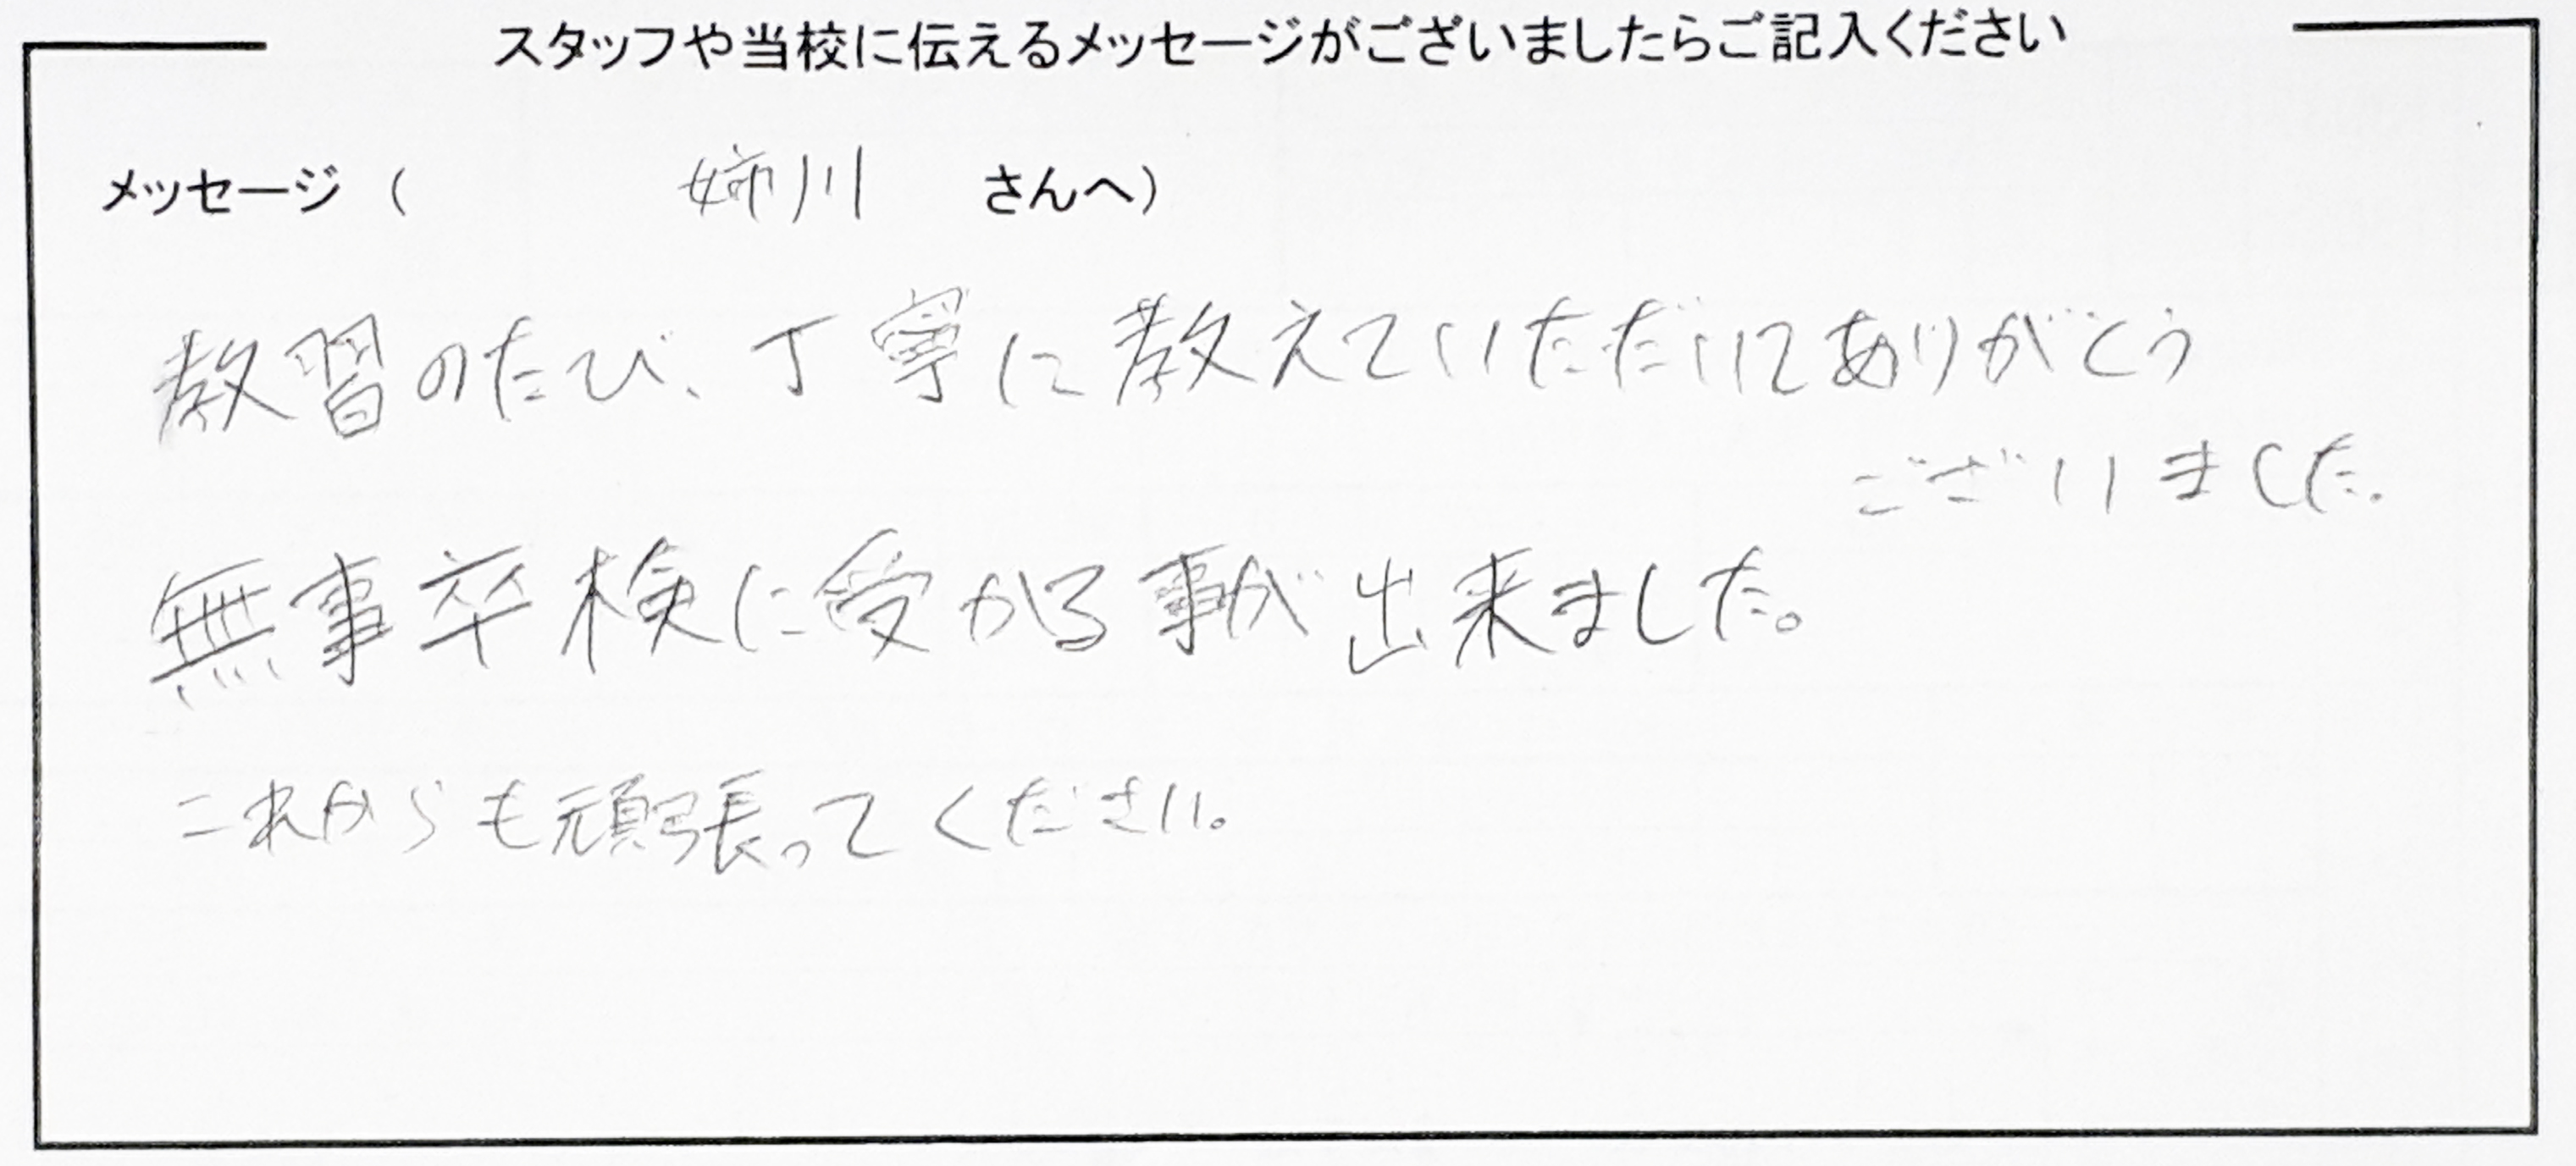 スタッフや当校に伝えるメッセージがございましたらご記入ください
メッセージ（ 姉川 さんへ）
教習のたび、丁寧に教えていただいてありがとう
ございました。
無事卒検に受かる事が出来ました。
これからも頑張ってください。